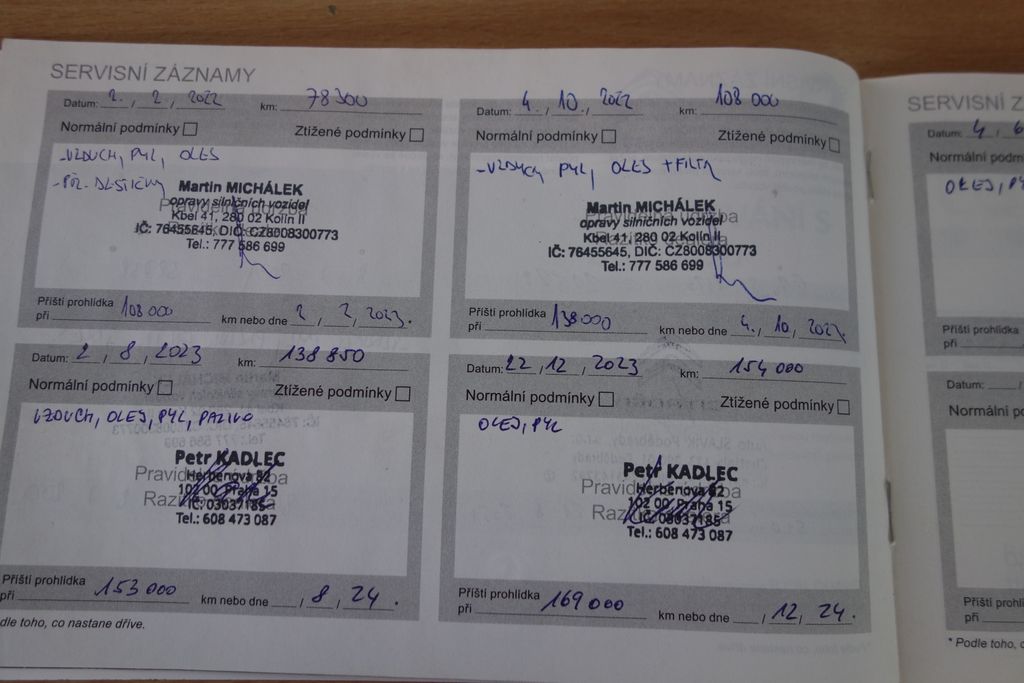 SERVISNÍ ZÁZNAMY
Datum: 2. / 2. / 2022 km: 78300
Normální podmínky Ztížené podmínky
-VZDUCH, PYL, OLEJ
-PŘ. DESTIČKY
Martin MICHÁLEK
opravy silničních vozidel
Kbel 41, 280 02 Kolín II
IČ: 76455645, DIČ: CZ8008300773
Tel.: 777 586 699
Příští prohlídka
při 108 000 km nebo dne 2 / 2 / 2023.
Datum: 4. / 10. / 2022 km: 108 000
Normální podmínky Ztížené podmínky
-VZDUCH, PYL, OLEJ + FILTR
Martin MICHÁLEK
opravy silničních vozidel
Kbel 41, 280 02 Kolín II
IČ: 76455645, DIČ: CZ8008300773
Tel.: 777 586 699
Příští prohlídka
při 138000 km nebo dne 4. / 10. / 2023.
Datum: 2 / 8 / 2023 km: 138 850
Normální podmínky Ztížené podmínky
VZDUCH, OLEJ, PYL, PALIVO
Petr KADLEC
Herbenova 82
102 00 Praha 15
IČ: 03037185
Tel.: 608 473 087
Příští prohlídka
při 153 000 km nebo dne / 8 / 24.
dle toho, co nastane dříve.
Datum: 22 / 12 / 2023 km: 154 000
Normální podmínky Ztížené podmínky
OLEJ, PYL
Petr KADLEC
Herbenova 82
102 00 Praha 15
IČ: 03037185
Tel.: 608 473 087
Příští prohlídka
při 169 000 km nebo dne / 12 / 24.
SERVISNÍ Z
Datum: 4 / 6
Normální podm
OLEJ, PY
Příští prohlídka
při
Datum: /
Normální po
Příští prohlí
při
* Podle toho, c